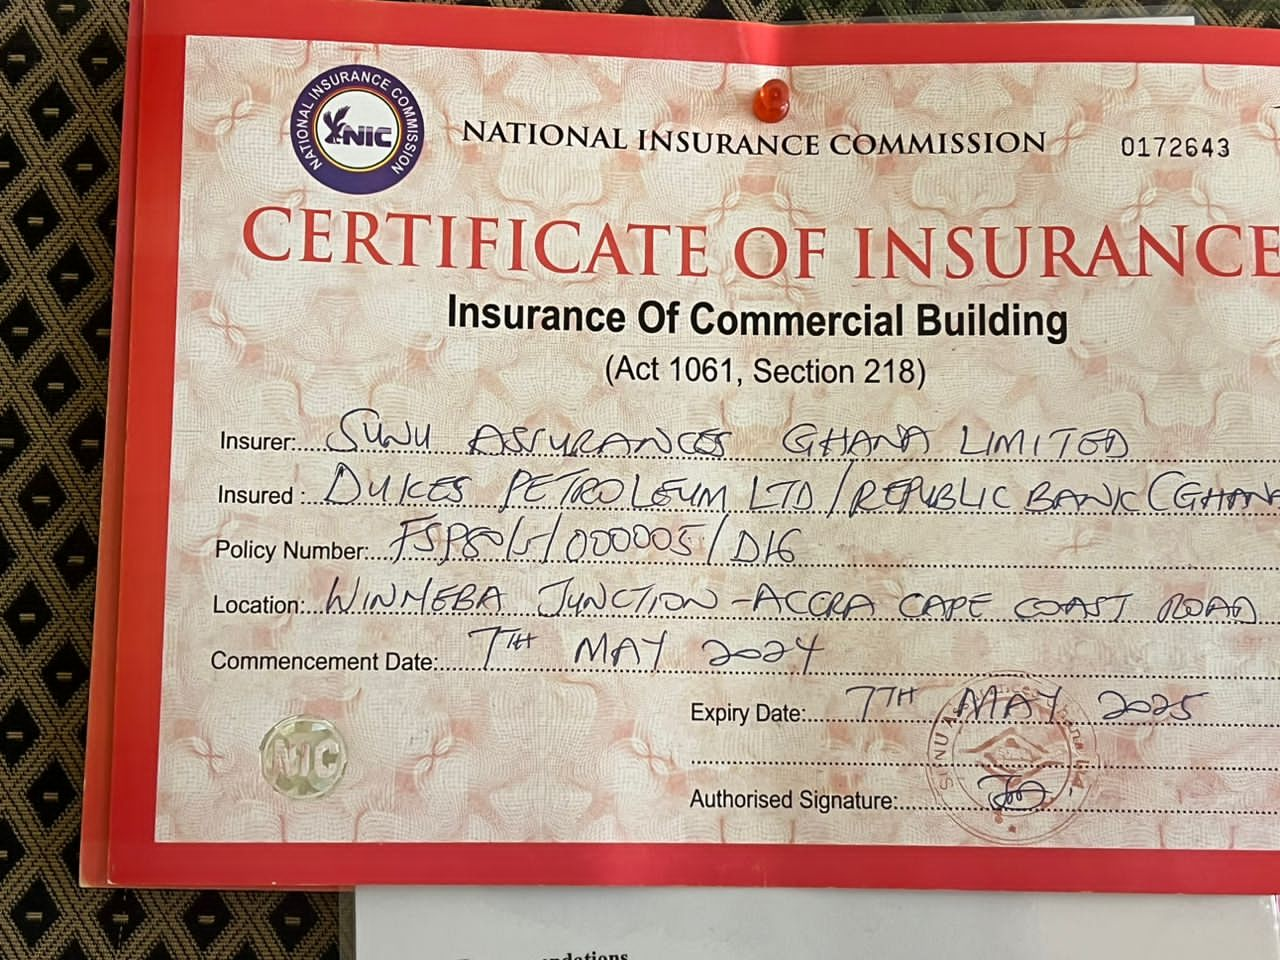 NATIONAL INSURANCE COMMISSION
NIC
NATIONAL INSURANCE COMMISSION
0172643
CERTIFICATE OF INSURANCE
Insurance Of Commercial Building
(Act 1061, Section 218)
Insurer: SUNU ASSURANCES GHANA LIMITED
Insured : DUKES PETROLEUM LTD/REPUBLIC BANK (GHANA
Policy Number: FSP80/5/000005/D16
Location: WINNEBA JUNCTION - ACCRA CAPE COAST ROAD
Commencement Date: 7TH MAY 2024
Expiry Date: 7TH MAY 2025
NIC
SUNU A
Authorised Signature: